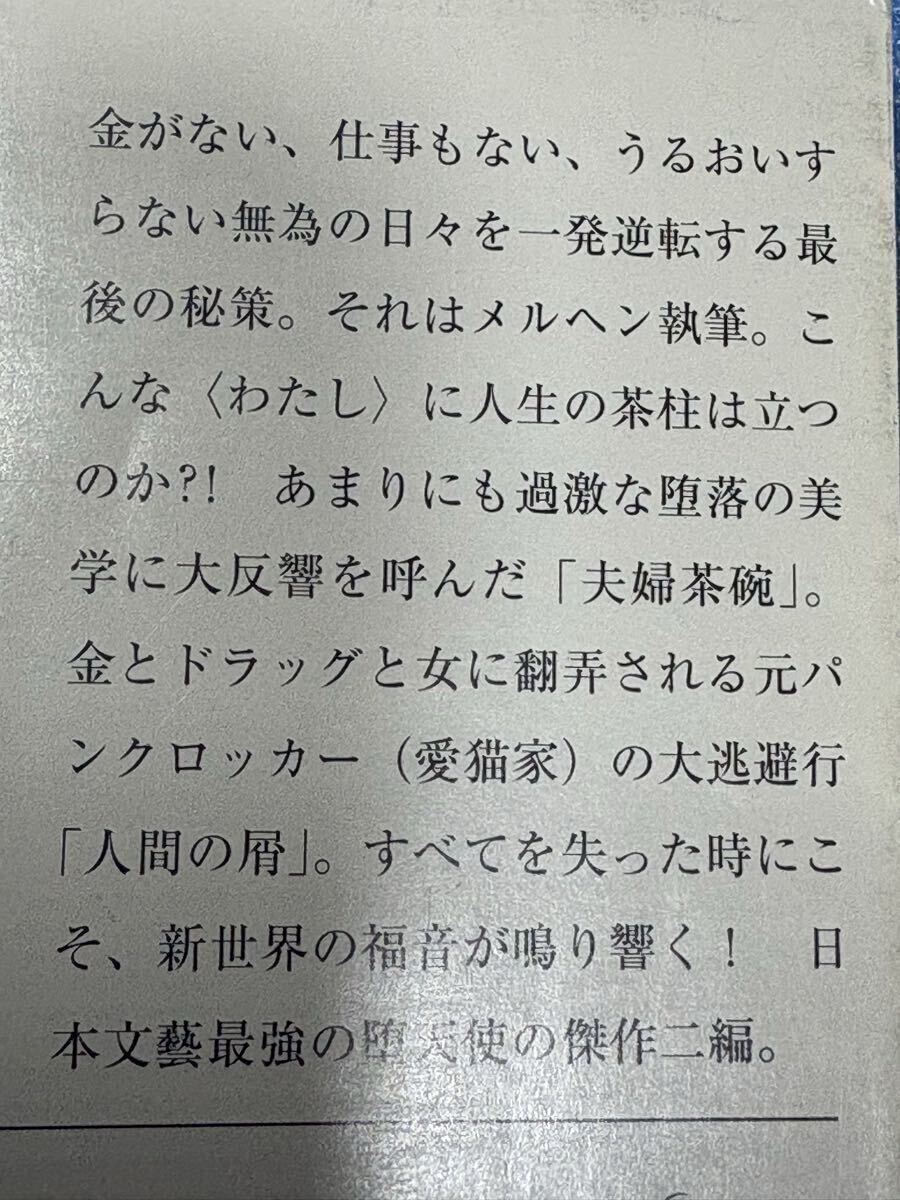 金がない、仕事もない、うるおいす
らない無為の日々を一発逆転する最
後の秘策。それはメルヘン執筆。こ
んな〈わたし〉に人生の茶柱は立つ
のか?!　あまりにも過激な堕落の美
学に大反響を呼んだ「夫婦茶碗」。
金とドラッグと女に翻弄される元パ
ンクロッカー（愛猫家）の大逃避行
「人間の屑」。すべてを失った時にこ
そ、新世界の福音が鳴り響く！　日
本文藝最強の堕天使の傑作二編。